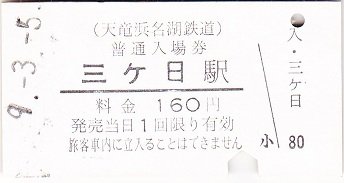 9.-3.-5
(天竜浜名湖鉄道)
普通入場券
三ケ日駅
料金 160円
発売当日1回限り有効
旅客車内に立入ることはできません
入・三ケ日
小 80